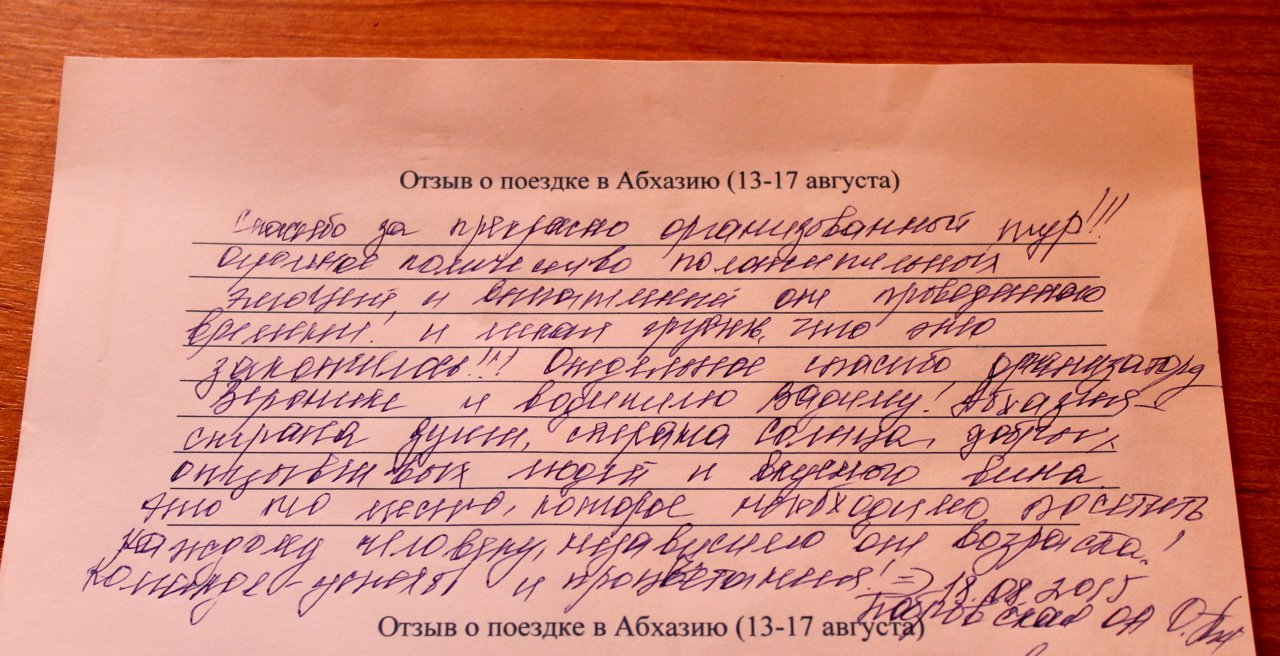 Отзыв о поездке в Абхазию (13-17 августа)
Спасибо за прекрасно организованный тур!!!
Огромное количество положительных
эмоций, и впечатлений от проведенного
времени! и легкая грусть, что это
закончилось!!! Отдельное спасибо организатору
Веронике и водителю Вадиму! Абхазия -
страна души, страна солнца, добрых,
отзывчивых людей и вкусного вина.
Это то место, которое необходимо посетить
каждому человеку, независимо от возраста!
Команде - успехов и процветания! => 18.08.2015
ОА
Отзыв о поездке в Абхазию (13-17 августа)